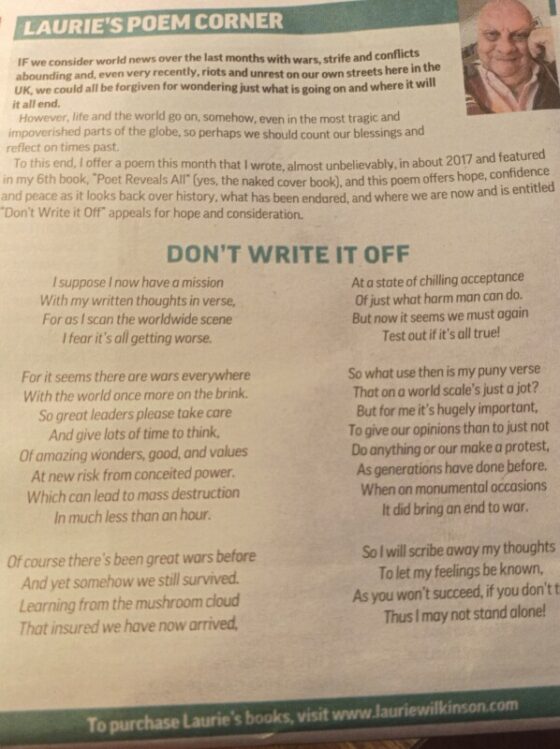 LAURIE'S POEM CORNER
IF we consider world news over the last months with wars, strife and conflicts
abounding and, even very recently, riots and unrest on our own streets here in the
UK, we could all be forgiven for wondering just what is going on and where it will
it all end.
However, life and the world go on, somehow, even in the most tragic and
impoverished parts of the globe, so perhaps we should count our blessings and
reflect on times past.
To this end, I offer a poem this month that I wrote, almost unbelievably, in about 2017 and featured
in my 6th book, "Poet Reveals All" (yes, the naked cover book), and this poem offers hope, confidence
and peace as it looks back over history, what has been endured, and where we are now and is entitled
"Don't Write it Off" appeals for hope and consideration.
DON'T WRITE IT OFF
I suppose I now have a mission
With my written thoughts in verse,
For as I scan the worldwide scene
I fear it's all getting worse.
For it seems there are wars everywhere
With the world once more on the brink.
So great leaders please take care
And give lots of time to think,
Of amazing wonders, good, and values
At new risk from conceited power.
Which can lead to mass destruction
In much less than an hour.
Of course there's been great wars before
And yet somehow we still survived.
Learning from the mushroom cloud
That insured we have now arrived,
At a state of chilling acceptance
Of just what harm man can do.
But now it seems we must again
Test out if it's all true!
So what use then is my puny verse
That on a world scale's just a jot?
But for me it's hugely important,
To give our opinions than to just not
Do anything or our make a protest,
As generations have done before.
When on monumental occasions
It did bring an end to war.
So I will scribe away my thoughts
To let my feelings be known,
As you won't succeed, if you don't t
Thus I may not stand alone!
To purchase Laurie's books, visit www.lauriewilkinson.com